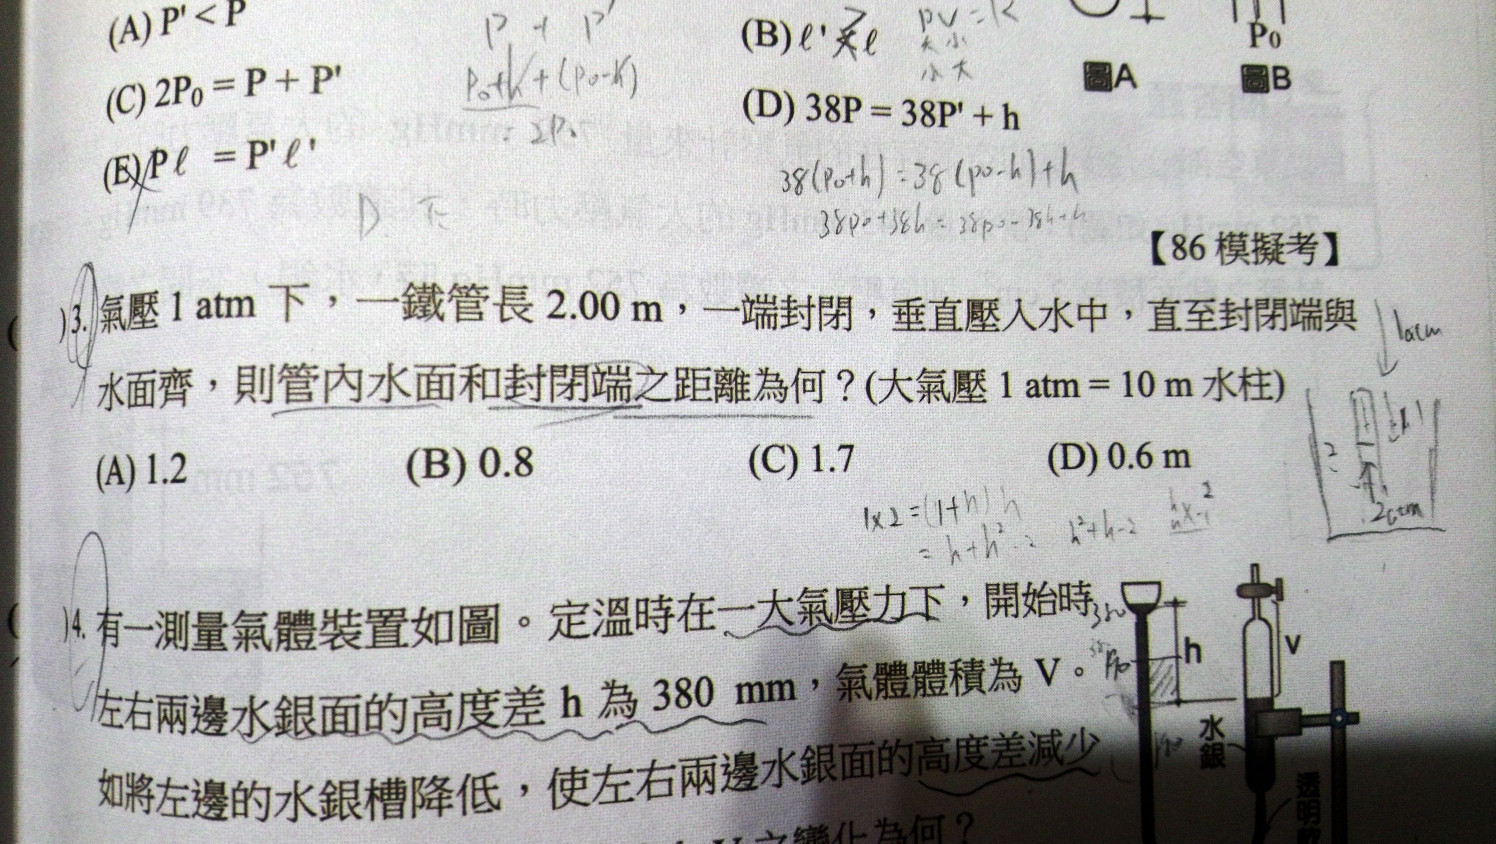 (A) P' < P
(B) ℓ' > ℓ
PV = K
大 小
小 大
P + P'
P₀+h + (P₀-h)
= 2P₀
P₀
圖A
圖B
(C) 2P₀ = P + P'
(D) 38P = 38P' + h
(E) Pℓ = P'ℓ'
38(P₀+h) = 38(P₀-h)+h
38P₀+38h = 38P₀-38h+h
【86 模擬考】
)3. 氣壓 1 atm 下，一鐵管長 2.00 m，一端封閉，垂直壓入水中，直至封閉端與
水面齊，則管內水面和封閉端之距離為何？(大氣壓 1 atm = 10 m 水柱)
(A) 1.2
(B) 0.8
(C) 1.7
(D) 0.6 m
1atm
2atm
1×2 = (1+h) h
= h+h²-2
h²+h-2
)4. 有一測量氣體裝置如圖。定溫時在一大氣壓力下，開始時
左右兩邊水銀面的高度差 h 為 380 mm，氣體體積為 V。
如將左邊的水銀槽降低，使左右兩邊水銀面的高度差減少
V 之變化為何？
h
V
水銀
透明軟